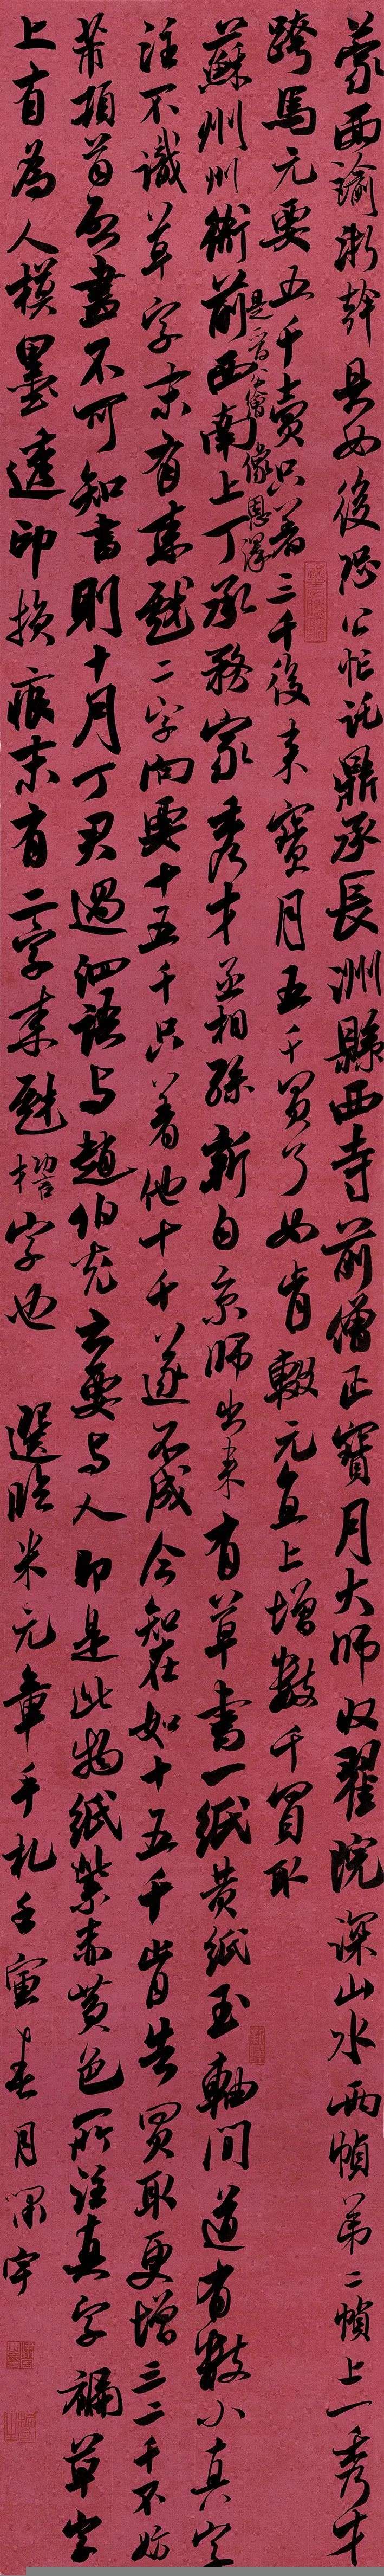 蒙面諭浙幹具如後恐公忙託鼎承長洲縣西寺前僧正寶月大師收翟院深山水兩幀第二幀上一秀才
跨馬元要五千賣只著三千後來寶月五千買了如肯輟元直上增數千買取
蘇州州衙前西南上丁承務家秀才丞相孫新自京師出來有草書一紙黃紙玉軸間道有數小真字
是晉公繪像恩澤
注不識草字末有來戲二字向要十五千只著他十千遂不成今知在如十五千肯告買取更增三二千不妨
芾頓首啟書不可知書則十月丁君過泗語與趙伯充云要與人即是此物紙紫赤黃色所注真字褊草字
上有為人模墨透印損痕末有二字來戲才
字也　選臨米元章手札壬寅春月